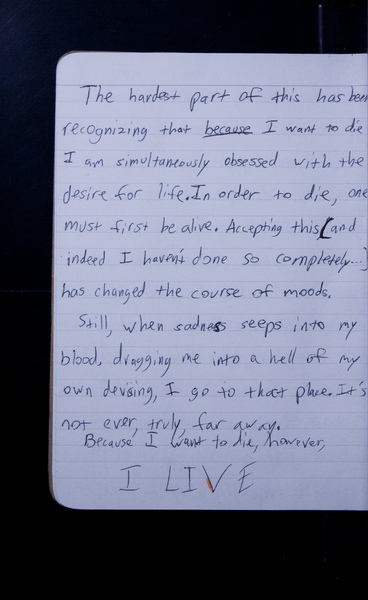 The hardest part of this has been
recognizing that because I want to die
I am simultaneously obsessed with the
desire for life. In order to die, one
must first be alive. Accepting this [and
indeed I haven't done so completely...]
has changed the course of moods.
Still, when sadness seeps into my
blood, dragging me into a hell of my
own devising, I go to that place. It's
not ever, truly, far away.
Because I want to die, however,
I LIVE